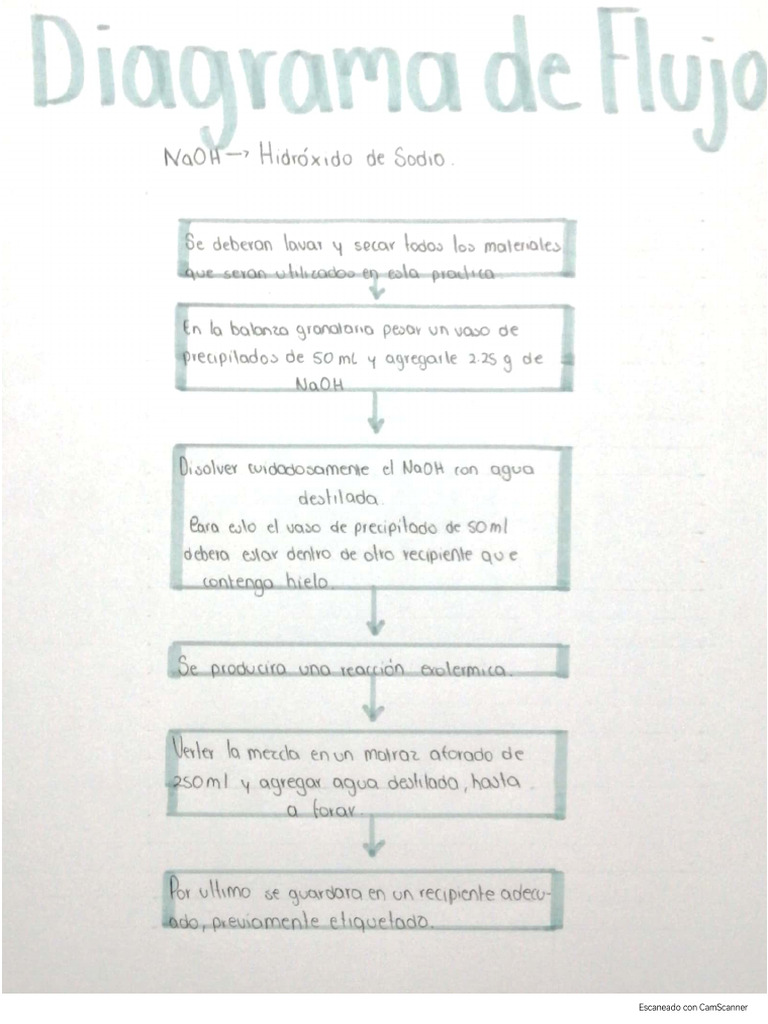 Diagrama de Flujo
NaOH → Hidróxido de Sodio.
Se deberan lavar y secar todos los materiales
que seran utilizados en esta practica
En la balanza granataria pesar un vaso de
precipitados de 50 mL y agregarle 2.25 g de
NaOH
Disolver cuidadosamente el NaOH con agua
destilada.
Para esto el vaso de precipitado de 50ml
debera estar dentro de otro recipiente que
contenga hielo.
Se producira una reacción exotermica.
Verter la mezcla en un matraz aforado de
250ml y agregar agua destilada, hasta
a forar.
Por ultimo se guardara en un recipiente adecu-
ado, previamente etiquetado.
Escaneado con CamScanner